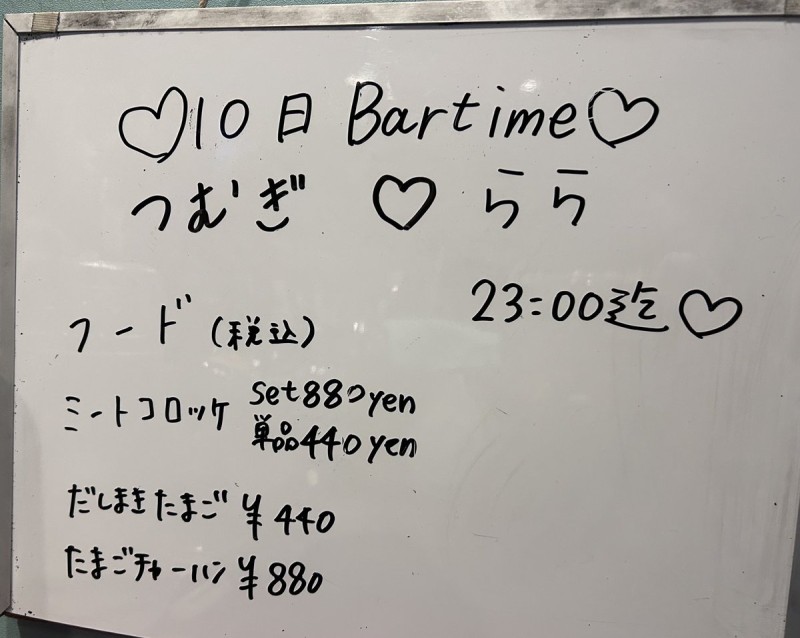 ♡10日 Bartime♡
つむぎ ♡ らら
23:00迄♡
フード(税込)
ミートコロッケ set880yen
単品440yen
だしまきたまご ¥440
たまごチャーハン ¥880